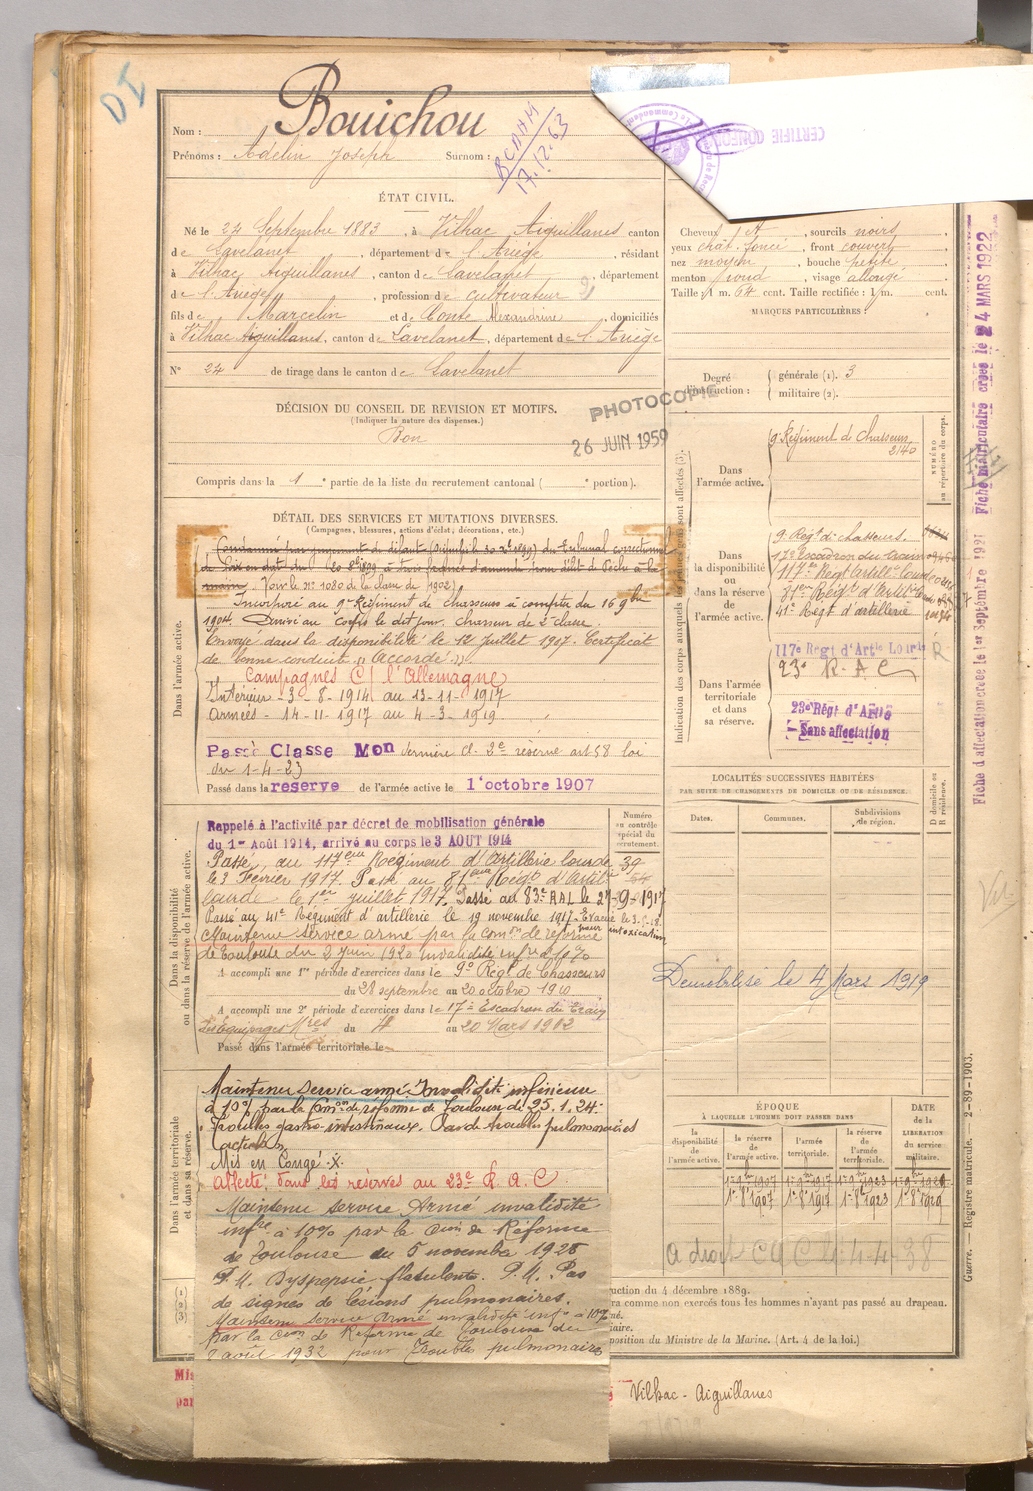 DI
Nom : Bouichou
Prénoms : Adelin Joseph Surnom :
BCAAM
17.12.63
CERTIFIE CONFORME
ÉTAT CIVIL.
Né le 24 Septembre 1883, à Vilhac Aiguillanes canton
de Lavelanet, département de l'Ariège, résidant
à Vilhac Aiguillanes, canton de Lavelanet, département
de l'Ariège, profession de cultivateur
fils de Marcelin et de Conte Alexandrine, domiciliés
à Vilhac Aiguillanes, canton de Lavelanet, département de l'Ariège
N° 24 de tirage dans le canton de Lavelanet
DÉCISION DU CONSEIL DE REVISION ET MOTIFS.
(Indiquer la nature des dispenses.)
Bon
PHOTOCOPIE
26 JUIN 1959
Compris dans la 1e partie de la liste du recrutement cantonal ( e portion).
Cheveux sourcils noirs
yeux chât. foncé, front couvert
nez moyen, bouche petite
menton rond, visage allongé
Taille : 1 m. 64 cent. Taille rectifiée : 1 m. cent.
MARQUES PARTICULIÈRES :
Degré d'instruction : générale (1). 3
militaire (2).
DÉTAIL DES SERVICES ET MUTATIONS DIVERSES.
(Campagnes, blessures, actions d'éclat, décorations, etc.)
Dans l'armée active.
Condamné par jugement de défaut du Tribunal correctionnel
de Foix d'amende pour délit de Pêche à la
main. (Voir le n° 1080 de la classe de 1902).
Incorporé au 9e Régiment de chasseurs à compter du 16 9bre
1904. Arrivé au corps le dit jour, chasseur de 2e classe.
Envoyé dans la disponibilité le 12 Juillet 1907. Certificat
de bonne conduite "Accordé".
Campagnes C/ l'Allemagne
Intérieur - 3-8-1914 au 13-11-1917
Armées - 14-11-1917 au 4-3-1919
Passé Classe Mon dernière cl. 2e réserve art 58 loi
du 1-4-23
Passé dans la réserve de l'armée active le 1 octobre 1907
Dans la disponibilité ou dans la réserve de l'armée active.
Rappelé à l'activité par décret de mobilisation générale
du 1er Août 1914, arrivé au corps le 3 AOUT 1914
Passé au 117ème Régiment d'Artillerie lourde
le 3 Février 1917. Passé au 81ème Régt d'Artil.
lourde le 1er juillet 1917. Passé au 83e RAL le 27-9-1917
Passé au 41e Régiment d'artillerie le 19 novembre 1917. Evacué le
pour intoxication
Maintenu service armé par la Comon de réforme
de Toulouse du 2 juin 1920 invalidité infre à 10%
A accompli une 1re période d'exercices dans le 9e Régt de Chasseurs
du 28 septembre au 20 octobre 1910
A accompli une 2e période d'exercices dans le 17e Escadron du Train
des Equipages Mres du 4 au 20 Mars 1912
Passé dans l'armée territoriale le
Numéro au contrôle spécial du recrutement.
39
54
Dans l'armée territoriale et dans sa réserve.
Maintenu service armé. Invalidité inférieure
à 10% par la Comon de réforme de Toulouse du 25.1.24 :
Troubles gastro-intestinaux. Pas de troubles pulmonaires
actuels.
Mis en Congé X.
Affecté dans les réserves au 23e R.A.C
Maintenu Service Armé invalidité
infre à 10% par la Com de Réforme
de Toulouse du 5 novembre 1928
P.M. Dyspepsie flatulente. P.M. Pas
de signes de lésions pulmonaires.
Maintenu service armé invalidité infre à 10%
par la Com de Réforme de Toulouse du
août 1932 pour Trouble pulmonaire
Indication des corps auxquels les jeunes gens sont affectés (3).
NUMÉRO au répertoire du corps.
Dans l'armée active.
9e Régiment de Chasseurs
2140
Dans la disponibilité ou dans la réserve de l'armée active.
9e Régt de chasseurs.
17e Escadron du train
117e Régt Artille lourde
81e Régt d'Artille
41e Régt d'artillerie
Dans l'armée territoriale et dans sa réserve.
117e Régt d'Artie Lourde
23e R-A-C
23e Régt d'Artie
- Sans affectation
LOCALITÉS SUCCESSIVES HABITÉES
PAR SUITE DE CHANGEMENTS DE DOMICILE OU DE RÉSIDENCE.
Dates. Communes. Subdivisions de région.
D domicile ou R résidence.
Démobilisé le 4 Mars 1919
ÉPOQUE
À LAQUELLE L'HOMME DOIT PASSER DANS
la disponibilité de l'armée active.
la réserve de l'armée active.
l'armée territoriale.
la réserve de l'armée territoriale.
DATE de la LIBERATION du service militaire.
1-9bre 1907 1-9bre 1917 1-9bre 1923 1-9bre 1929
1-8bre 1907 1-8bre 1917 1-8bre 1923 1-8bre 1929
A droit 4-4-38
uction du 4 décembre 1889.
ra comme non exercés tous les hommes n'ayant pas passé au drapeau.
né.
iaire.
position du Ministre de la Marine. (Art. 4 de la loi.)
Mis
par
Vilhac - Aiguillanes
Fiche d'affectation créée le 1er Septembre 1921
Fiche matriculaire créée le 24 MARS 1922
Guerre. — Registre matricule. — 2-89-1903.